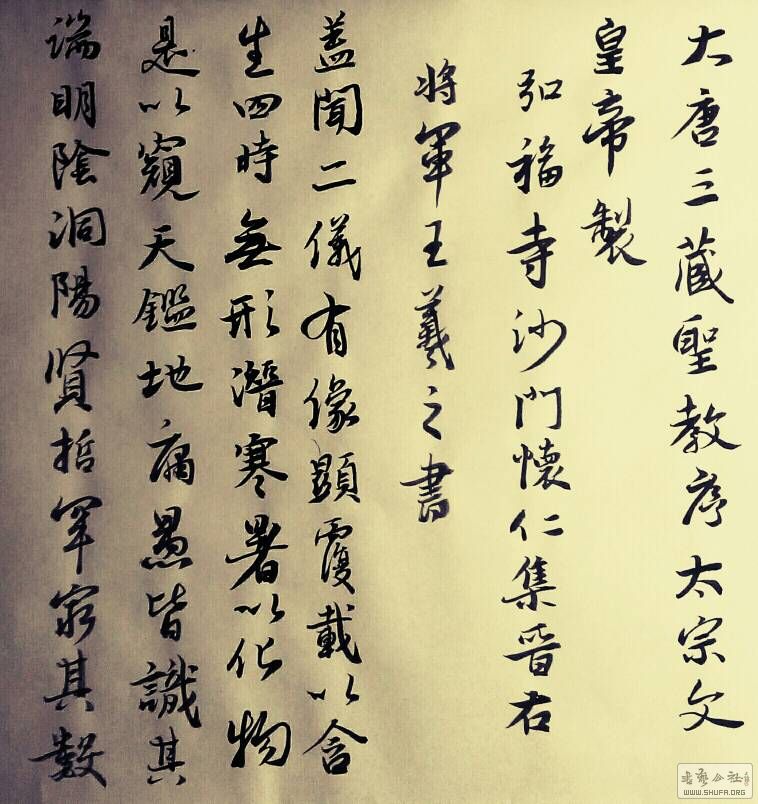 大唐三藏聖教序太宗文
皇帝製
弘福寺沙門懷仁集晉右
将軍王羲之書
蓋聞二儀有像顯覆載以含
生四時無形潛寒暑以化物
是以窺天鑑地庸愚皆識其
端明陰洞陽賢哲罕窮其數
书艺公社
WWW.SHUFA.ORG